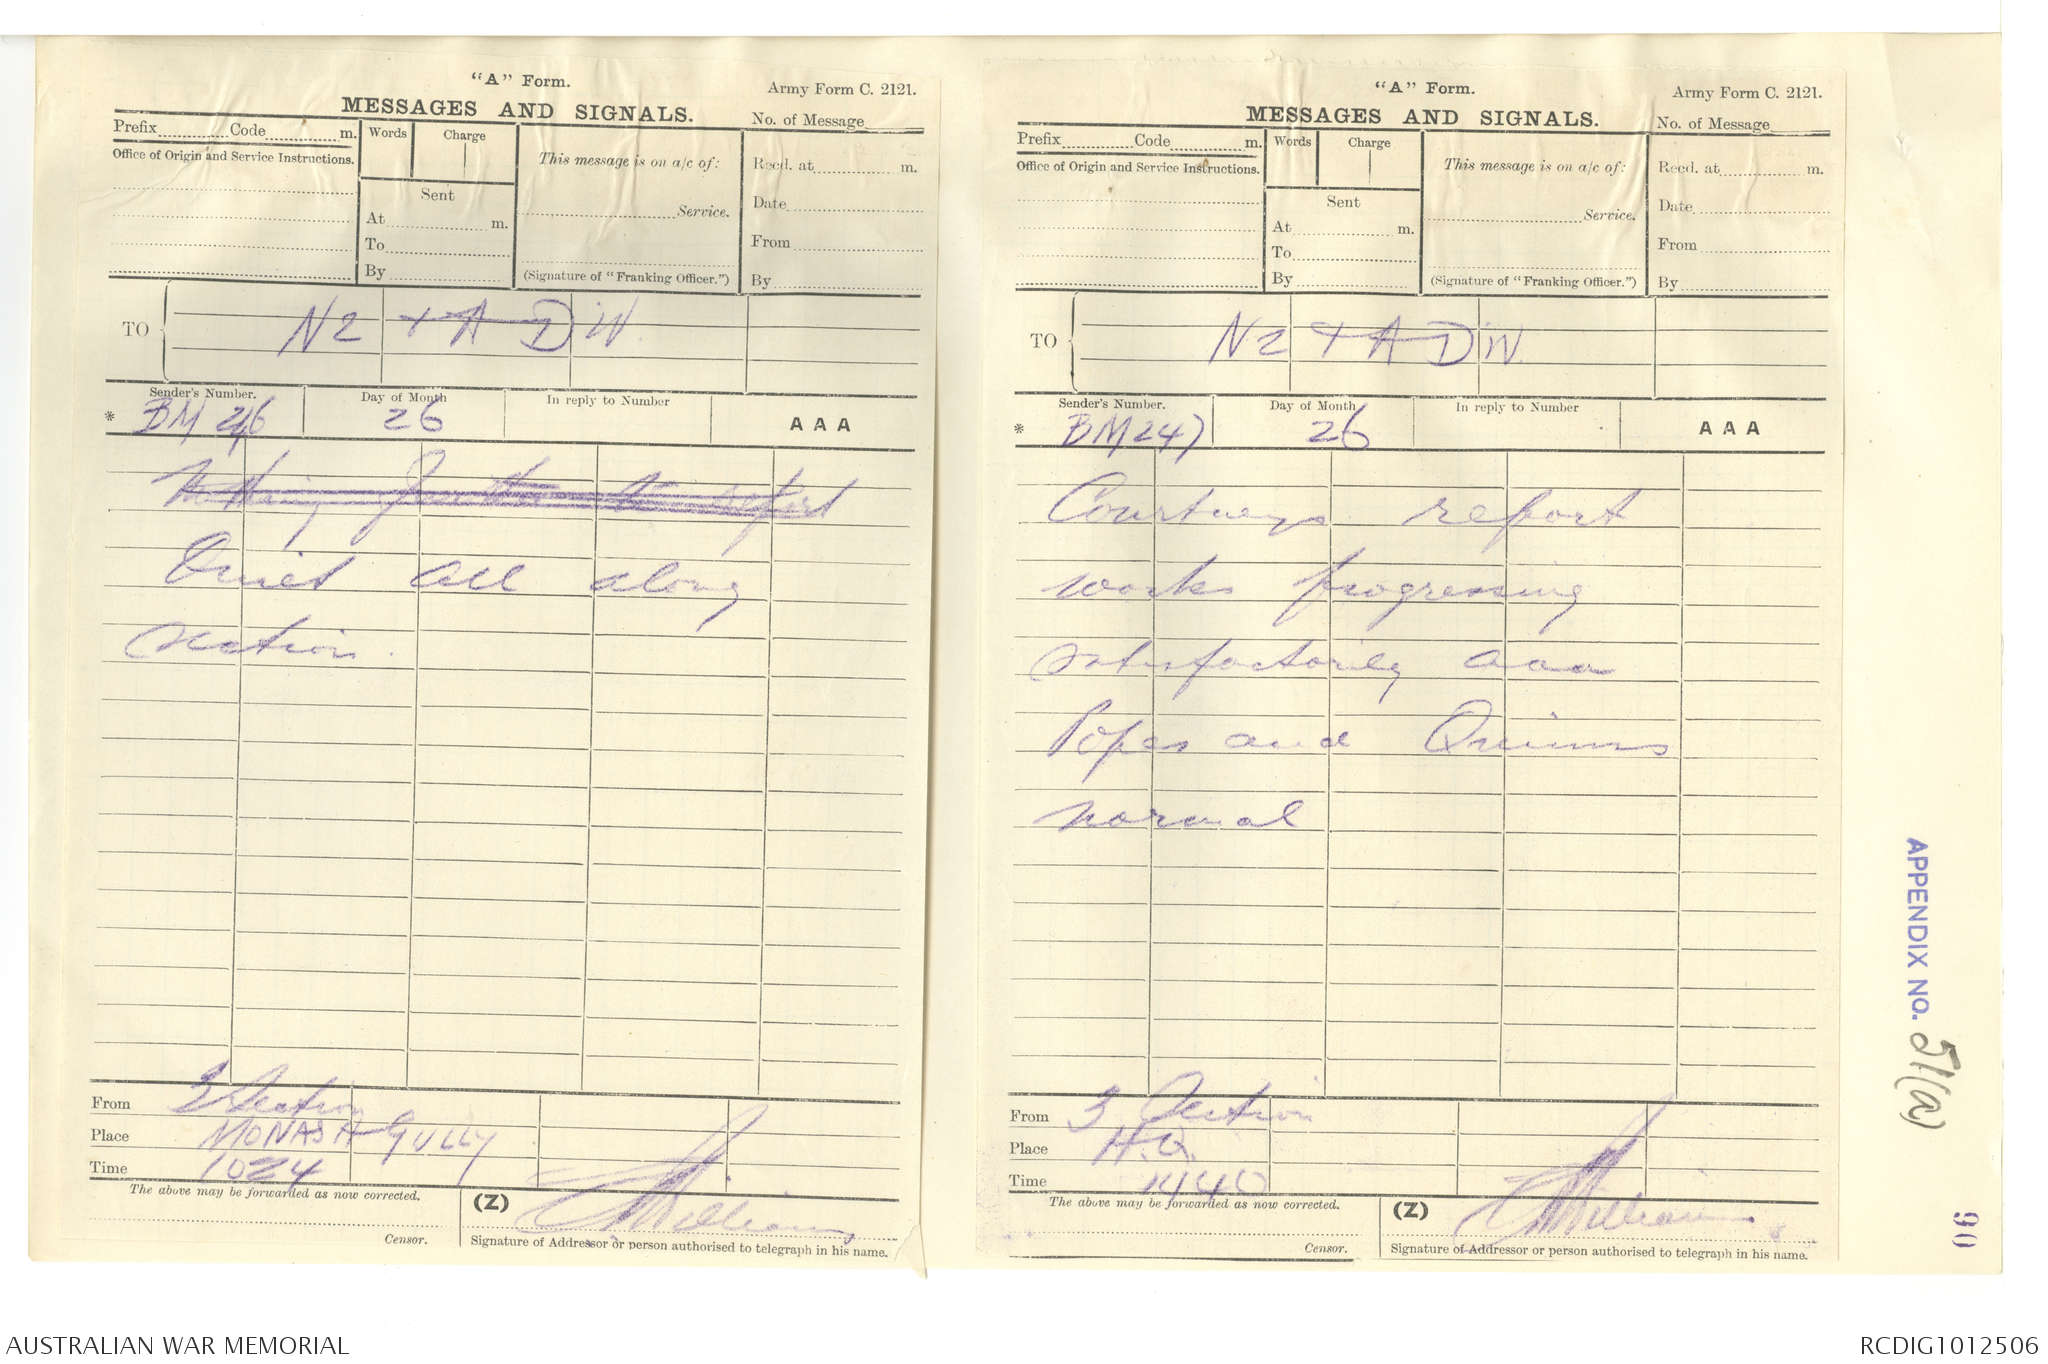 "A" Form.
Army Form C. 2121.
MESSAGES AND SIGNALS.
No. of Message
Prefix Code m.
Words Charge
This message is on a/c of:
Recd. at m.
Office of Origin and Service Instructions.
Sent
Date
At m.
Service.
To
From
By
(Signature of "Franking Officer.")
By
TO
N Z & A DIV.
Sender's Number.
Day of Month
In reply to Number
* BM 246
26
AAA
Nothing further to report
Quiet all along
section.
From 3 Section
Place MONASH GULLY
Time 1024
The above may be forwarded as now corrected.
(Z)
Williams
Censor.
Signature of Addressor or person authorised to telegraph in his name.
"A" Form.
Army Form C. 2121.
MESSAGES AND SIGNALS.
No. of Message
Prefix Code m.
Words Charge
This message is on a/c of:
Recd. at m.
Office of Origin and Service Instructions.
Sent
Date
At m.
Service.
To
From
By
(Signature of "Franking Officer.")
By
TO
N Z & A DIV
Sender's Number.
Day of Month
In reply to Number
* BM 247
26
AAA
Courtneys report
works progressing
satisfactorily aaa
Popes and Quinns
normal
From 3 Section
Place H.Q.
Time 1440
The above may be forwarded as now corrected.
(Z)
Williams
Censor.
Signature of Addressor or person authorised to telegraph in his name.
APPENDIX NO. 51(a)
90
AUSTRALIAN WAR MEMORIAL
RCDIG1012506